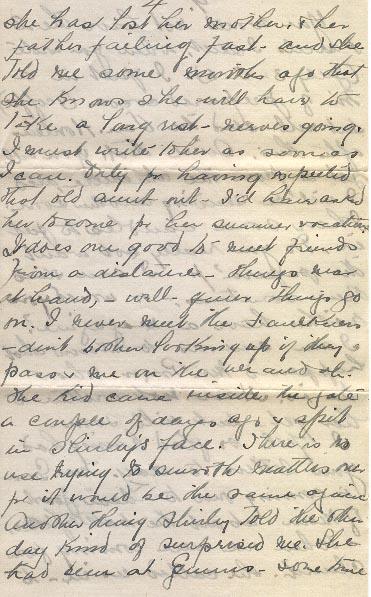 4
she has lost her mother, & her
father failing fast - and she
told me some months ago that
she knows she will have to
take a long rest - nerves going.
I must write to her as soon as
I can. Only for having expected
that old aunt out - I'd have asked
her to come for her summer vacation
It does one good to meet friends
from a distance - things near
at hand, - well - queer things go
on. I never meet the
- don't bother looking up if they
pass me on the
The kid came inside the gate
a couple of days ago & spit
in Shirley's face. There is no
use trying to smooth matters over
for it would be the same again
Another thing Shirley told the other
day kind of surprised me. She
had been at - some time